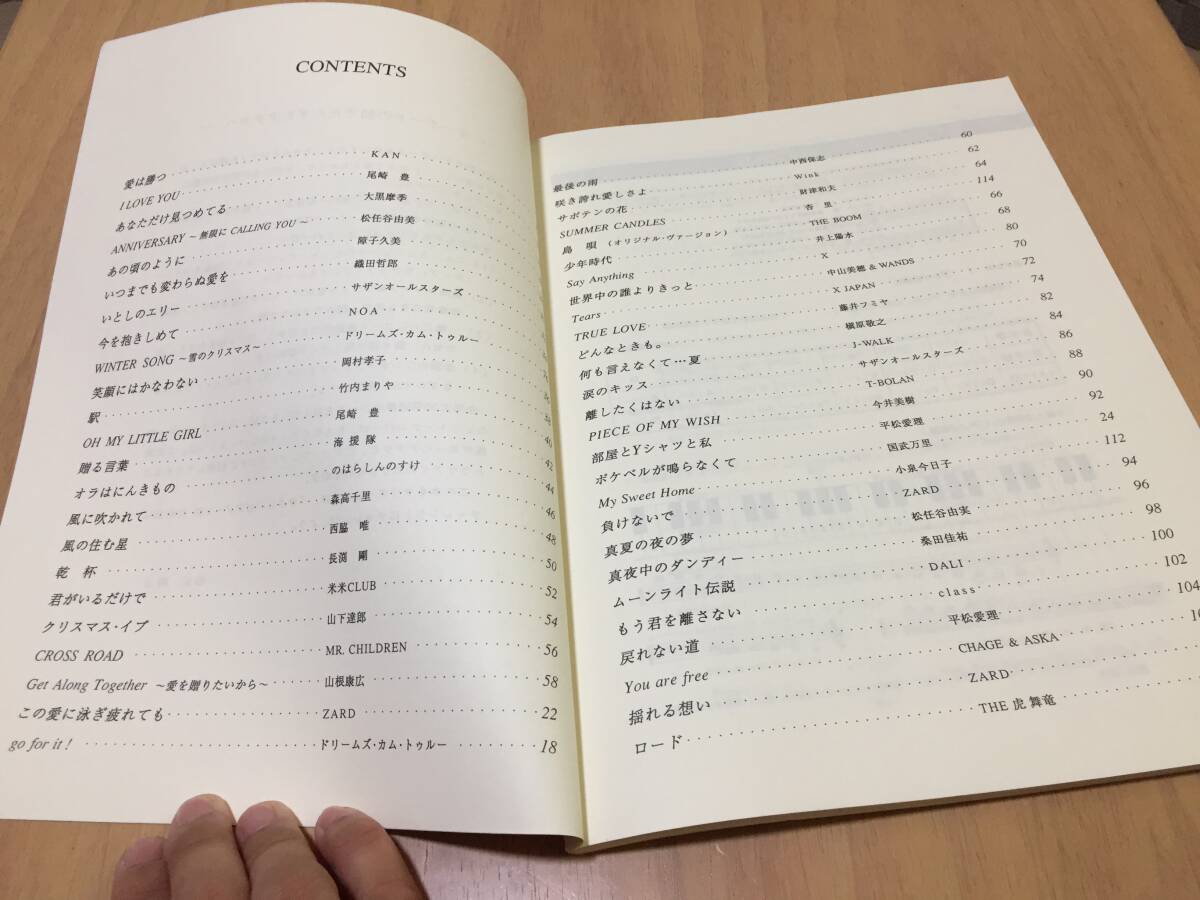 CONTENTS
愛は勝つ KAN
I LOVE YOU 尾崎 豊
あなただけ見つめてる 大黒摩季
ANNIVERSARY ～無限に CALLING YOU～ 松任谷由美
あの頃のように 障子久美
いつまでも変わらぬ愛を 織田哲郎
いとしのエリー サザンオールスターズ
今を抱きしめて NOA
WINTER SONG ～雪のクリスマス～ ドリームズ・カム・トゥルー
笑顔にはかなわない 岡村孝子
駅 竹内まりや
OH MY LITTLE GIRL 尾崎 豊
贈る言葉 海援隊 40
オラはにんきもの のはらしんのすけ 42
風に吹かれて 森高千里 44
風の住む星 西脇 唯 46
乾 杯 長渕 剛 48
君がいるだけで 米米CLUB 50
クリスマス・イブ 山下達郎 52
CROSS ROAD MR. CHILDREN 54
Get Along Together ～愛を贈りたいから～ 山根康広 56
この愛に泳ぎ疲れても ZARD 22
go for it! ドリームズ・カム・トゥルー 18
最後の雨 中西保志 60
咲き誇れ愛しさよ Wink 62
サボテンの花 財津和夫 64
SUMMER CANDLES 杏里 114
島 唄 (オリジナル・ヴァージョン) THE BOOM 66
少年時代 井上陽水 68
Say Anything X 80
世界中の誰よりきっと 中山美穂 & WANDS 70
Tears X JAPAN 72
TRUE LOVE 藤井フミヤ 74
どんなときも。 槇原敬之 82
何も言えなくて…夏 J-WALK 84
涙のキッス サザンオールスターズ 86
離したくはない T-BOLAN 88
PIECE OF MY WISH 今井美樹 90
部屋とYシャツと私 平松愛理 92
ポケベルが鳴らなくて 国武万里 24
My Sweet Home 小泉今日子 112
負けないで ZARD 94
真夏の夜の夢 松任谷由実 96
真夜中のダンディー 桑田佳祐 98
ムーンライト伝説 DALI 100
もう君を離さない class 102
戻れない道 平松愛理 104
You are free CHAGE & ASKA
揺れる想い ZARD
ロード THE 虎舞竜